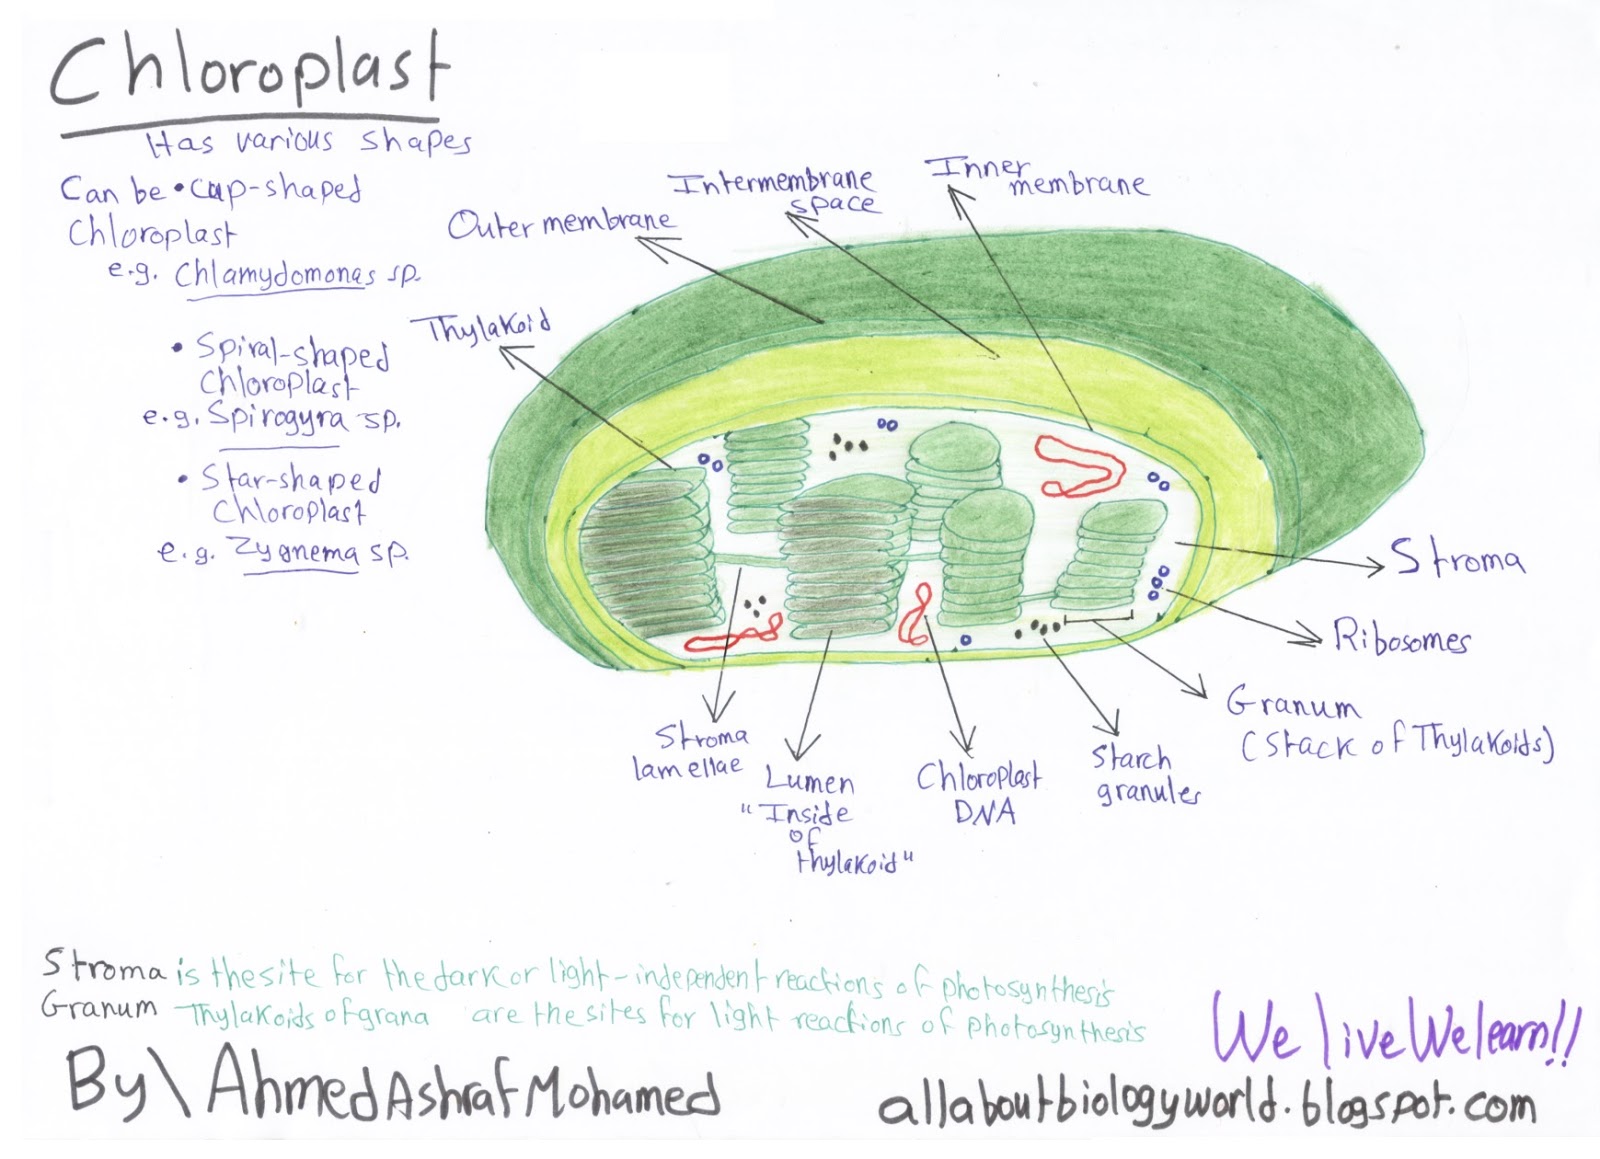 Chloroplast
Has various shapes
Can be • cup-shaped
Chloroplast
e.g. Chlamydomonas sp.
• Spiral-shaped
Chloroplast
e.g. Spirogyra sp.
• Star-shaped
Chloroplast
e.g. Zygnema sp.
Thylakoid
Outer membrane
Intermembrane
space
Inner
membrane
Stroma
Ribosomes
Granum
(Stack of Thylakoids)
Starch
granules
Chloroplast
DNA
Lumen
"Inside
of
thylakoid"
Stroma
lamellae
Stroma is the site for the dark or light-independent reactions of photosynthesis
Granum Thylakoids of grana are the sites for light reactions of photosynthesis
We live We learn!!
By\ Ahmed Ashraf Mohamed
allaboutbiologyworld.blogspot.com